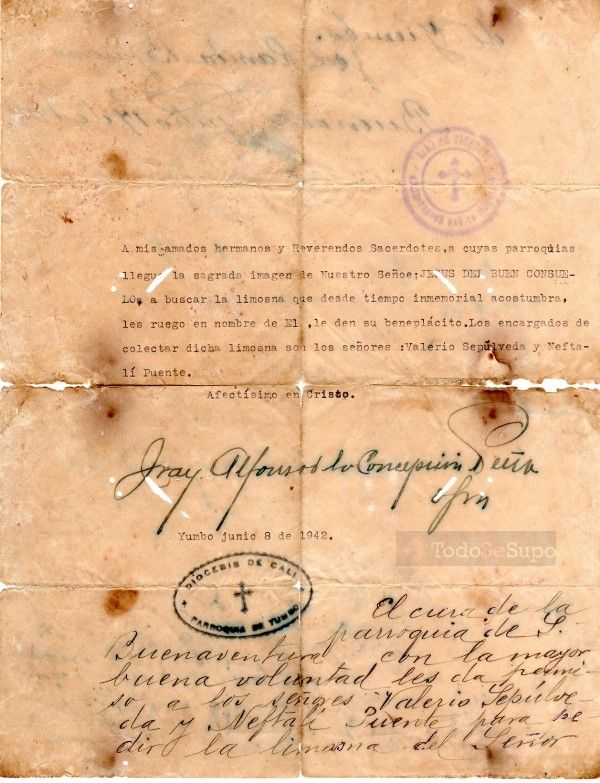 A mis amados hermanos y Reverendos Sacerdotes, a cuyas parroquias
llegue la sagrada imagen de Nuestro Señoe:JESUS DEL BUEN CONSUE-
LO, a buscar la limosna que desde tiempo inmemorial acostumbra,
les ruego en nombre de El ,le den su beneplácito.Los encargados de
colectar dicha limosna son los señores :Valerio Sepúlveda y Nefta-
lí Puente.
Afectísimo en Cristo.
Fray. Alfonso de la Concepción Peña
ofm
Yumbo junio 8 de 1942.
TodoSeSupo
DIOCESIS DE CALI
PARROQUIA DE YUMBO
El cura de la
parroquia de S.
Buenaventura con la mayor
buena voluntad les da permi-
so a los señores Valerio Sepúlve
da y Neftalí Puente para pe-
dir la limosna del Señor